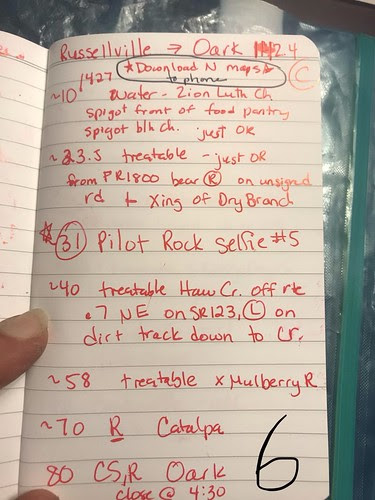 Russellville → Oark 2.4
*Download N maps*
to phone
C
1427
~10 water - Zion Luth Ch
spigot front of food pantry
spigot blh ch. just OK
~23.5 treatable - just OR
from FR1800 bear R on unsigned
rd + Xing of Dry Branch
* 31 Pilot Rock selfie #5
~40 treatable Haw Cr. off rte
.7 NE on SR123, L on
dirt track down to Cr.
~58 treatable x Mulberry R
~70 R Catalpa
80 CS, R Oark
close @ 4:30
6